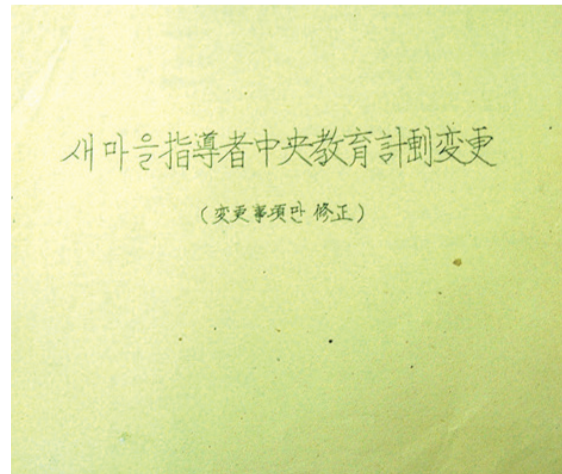 새마을指導者中央教育計劃変更
(変更事項만 修正)